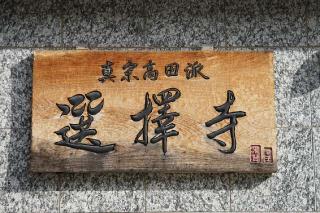 真宗高田派
選擇寺